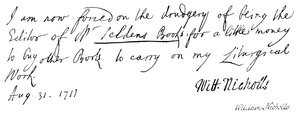 I am now forced on the drudgery of being the
Editor of Mr Seldens Books for a little money
to buy other Books to carry on my Liturgical
Work.
Aug. 31. 1711 Will: Nicholls
William Nicholls.